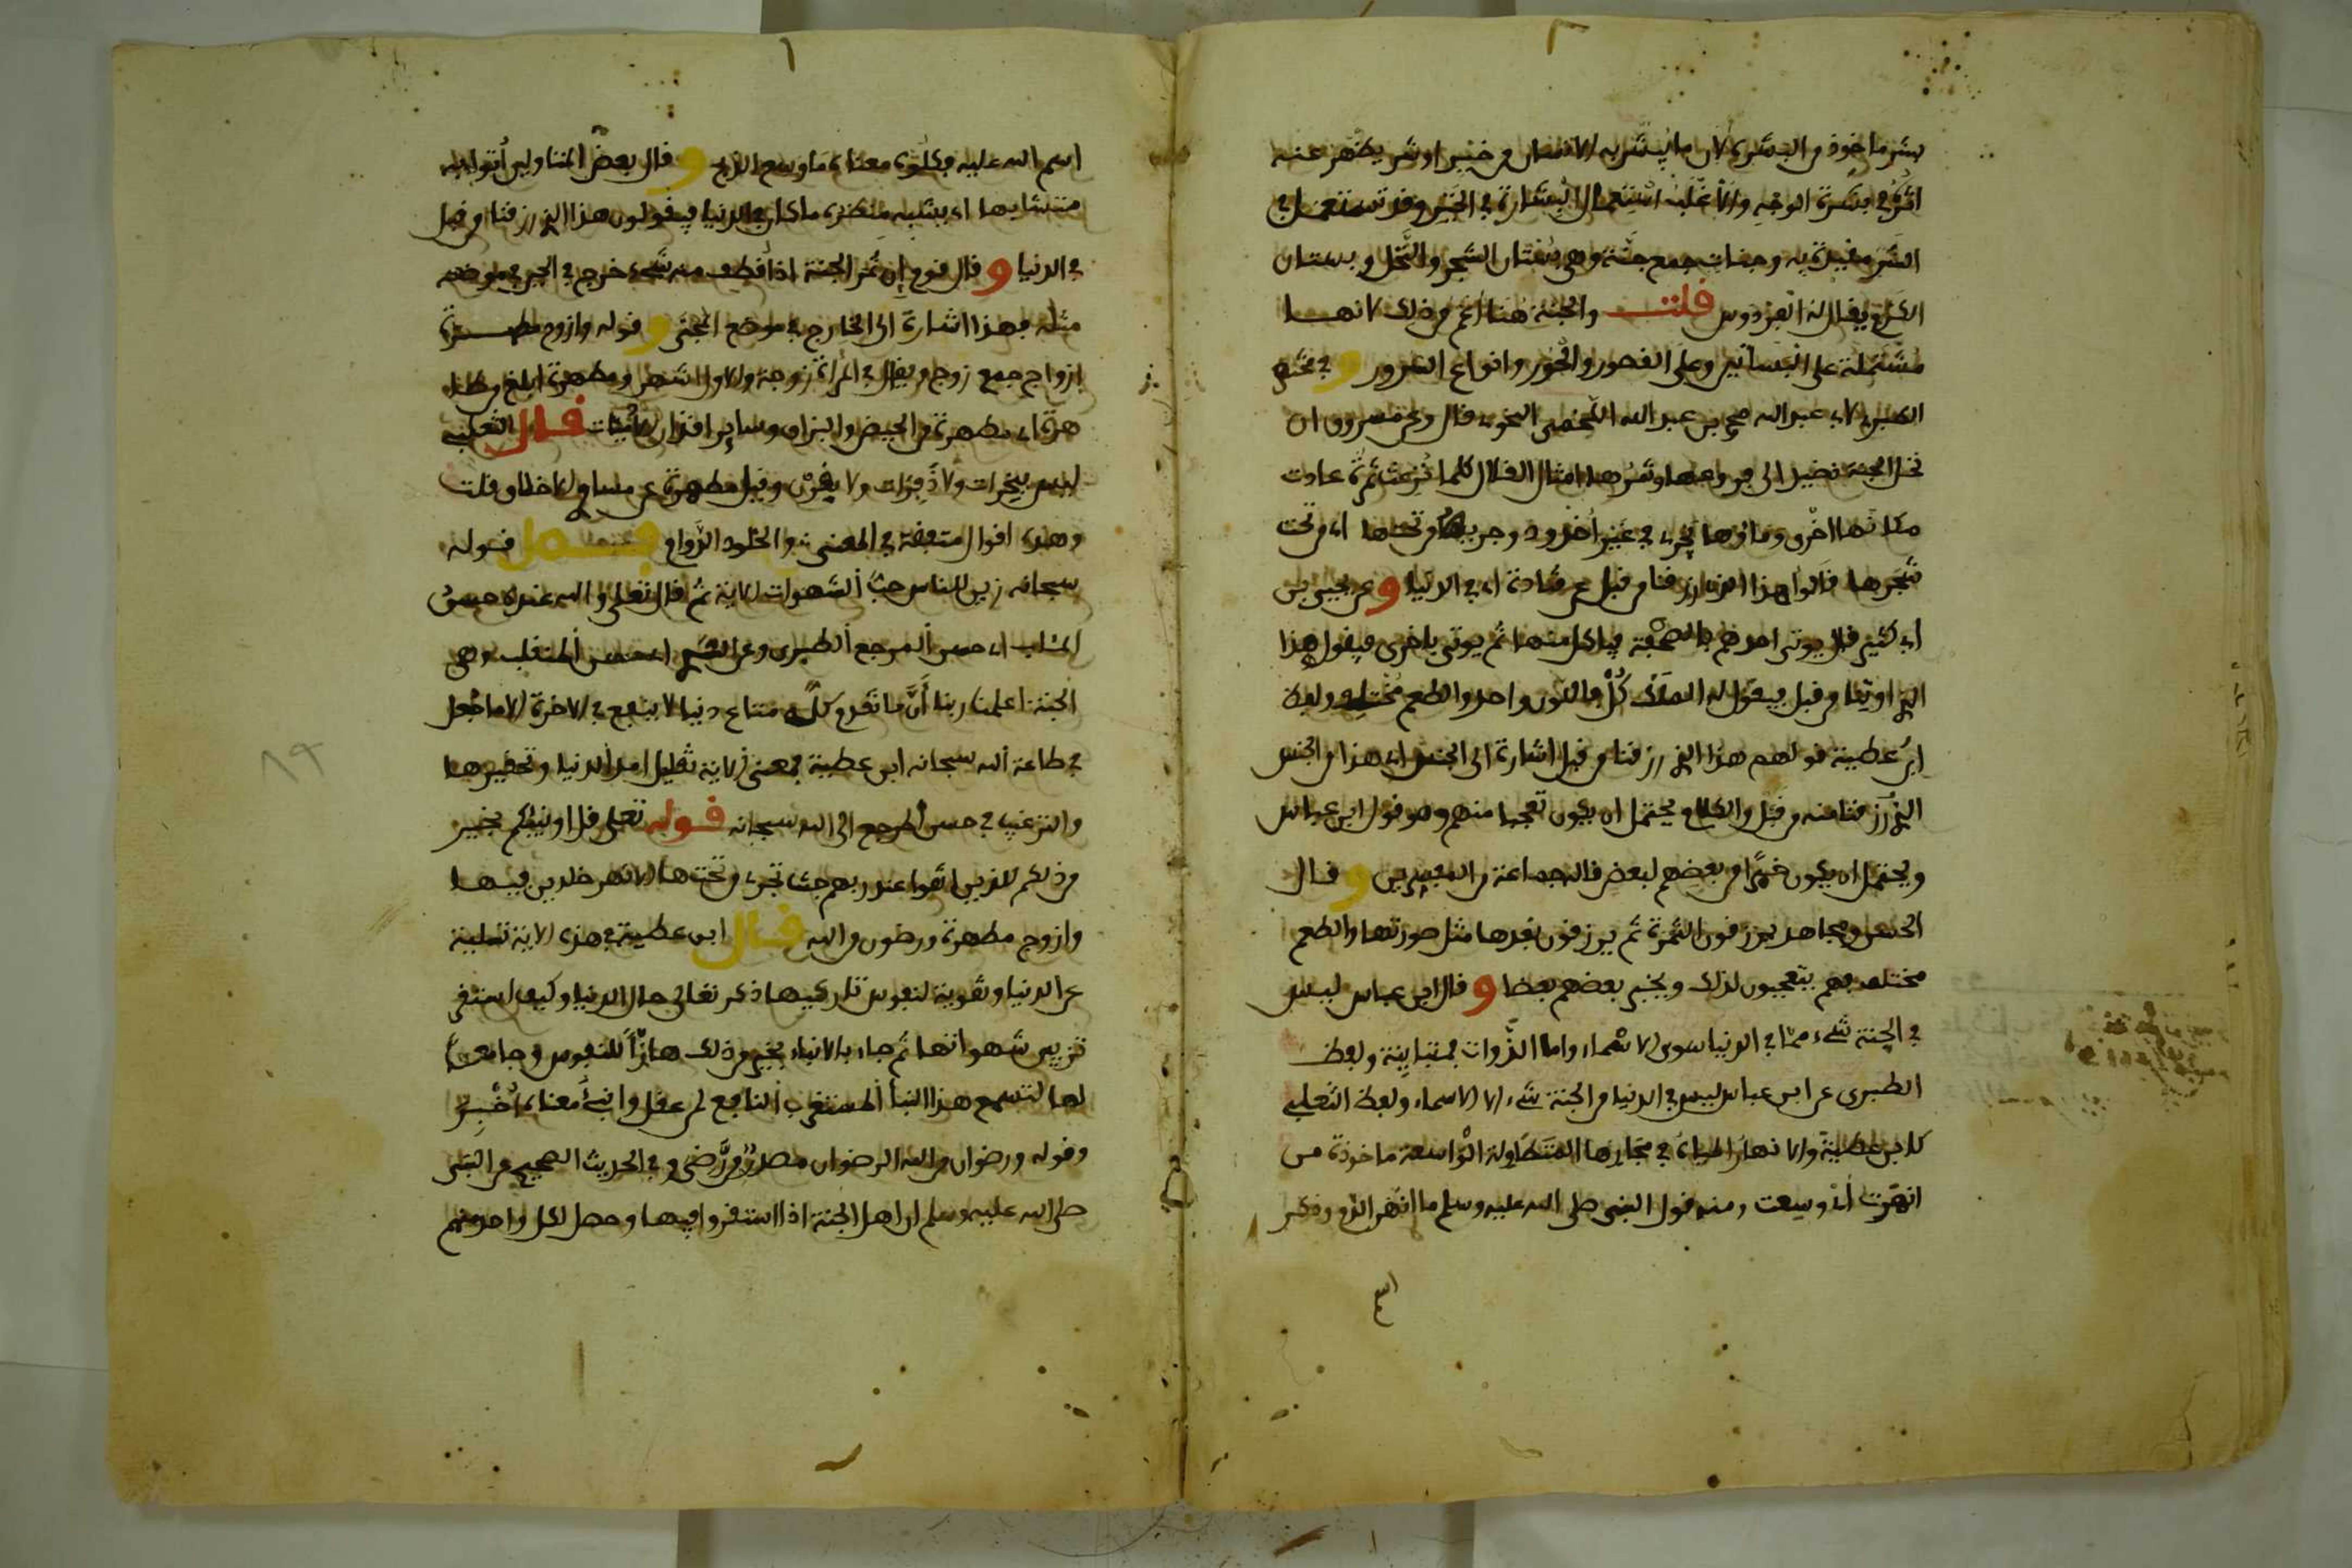 بشر ماخوذ من البشرى لان ما يبشر به الانسان من خير او شر يظهر عنه
اثر في بشرة الوجه والاغلب استعمال البشارة في الخير وقد تستعمل في
الشر مقيدة به وجنات جمع جنة وهي بستان الشجر والنخل وبستان
الكرم يقال له الفردوس قلت والجنة هنا اعم من ذلك لانها
مشتملة على البساتين وعلى القصور والحور وانواع السرور و في مختصر
الطبري لابي عبد الله محمد بن عبد الله اللخمي النحوي قال وعن مسروق ان
نخل الجنة نضيد الى فروعها وثمرها امثال القلال كلما نزعت ثمرة عادت
مكانها اخرى وماؤها يجري في غير اخدود وجريها من تحتها اي من تحت
شجرها قالوا هذا الذي رزقنا من قبل عن قتادة اي في الدنيا و عن يحيى بن
ابي كثير قال يوتى احدهم بالصحفة فياكل منها ثم يوتى باخرى فيقول هذا
الذي اوتينا من قبل فيقول له الملك كل فاللون واحد والطعم مختلف ولفظ
ابن عطية قولهم هذا الذي رزقنا من قبل اشارة الى الجنس اي هذا من الجنس
الذي رزقنا منه من قبل والكلام يحتمل ان يكون تعجبا منهم وهو قول ابن عباس
ويحتمل ان يكون خبرا من بعضهم لبعض قاله جماعة من المفسرين و قال
الحسن ومجاهد يرزقون الثمرة ثم يرزقون بعدها مثل صورتها والطعم
مختلف فهم يتعجبون لذلك ويخبر بعضهم بعضا و قال ابن عباس ليس
في الجنة شيء مما في الدنيا سوى الاسماء واما الذوات فمتباينة ولفظ
الطبري عن ابن عباس ليس في الدنيا من الجنة شيء الا الاسماء ولفظ الثعلبي
كابن عطية والانهار المياه في مجاريها المتطاولة الواسعة ماخوذة من
انهرت اي وسعت ومنه قول النبي صلى الله عليه وسلم ما انهر الدم وذكر
اسم الله عليه فكلوه معناه ما وسع الذبح و قال بعض المتاولين أتوا به
متشابها اي يشبه منظره ما كان في الدنيا فيقولون هذا الذي رزقنا من قبل
في الدنيا و قال قوم إن ثمر الجنة اذا قطف منه شيء خرج في الحين في موضعه
مثله فهذا اشارة الى الخارج في موضع المجنى و قوله وازوج مطهرة
ازواج جمع زوج ويقال في المراة زوجة والاول اشهر ومطهرة ابلغ من طا
هرة اي مطهرة من الحيض والبزاق وساير اقذار الادميات قال الثعلبي
ليس بنخرات ولا ذفرات ولا يغرن وقيل مطهرة عن مساوي الاخلاق قلت
وهذه اقوال متفقة في المعنى والخلود الدوام فصل قوله
سبحانه زين للناس حب الشهوات الاية ثم قال تعلى والله عنده حسن
المئاب اي حسن المرجع الطبري وعن السدي اي حسن المنقلب وهي
الجنة اعلمنا ربنا أن ما تقدم كله متاع دنيا لا ينفع في الاخرة الا ما جعل
في طاعة الله سبحانه ابن عطية فمعنى الاية تقليل امر الدنيا وتحقيرها
والترغيب في حسن المرجع الى الله سبحانه قوله تعلى قل اونبئكم بخير
من ذلكم للذين اتقوا عند ربهم جنت تجري من تحتها الانهر خلدين فيها
وازوج مطهرة ورضون من الله قال ابن عطية في هذه الاية تسلية
عن الدنيا وتقوية لنفوس تاركيها ذكر تعالى حال الدنيا وكيف استقر
تزيين شهواتها ثم جاء بالانباء بخير من ذلك هازا للنفوس وجامعا
لها لتسمع هذا النبا المستغرب النافع لمن عقل وانبئ معناه أخبر
وقوله ورضوان من الله الرضوان مصدر من رضي و في الحديث الصحيح عن النبي
صلى الله عليه وسلم ان اهل الجنة اذا استقروا فيها وحصل لكل واحد منهم
اسم